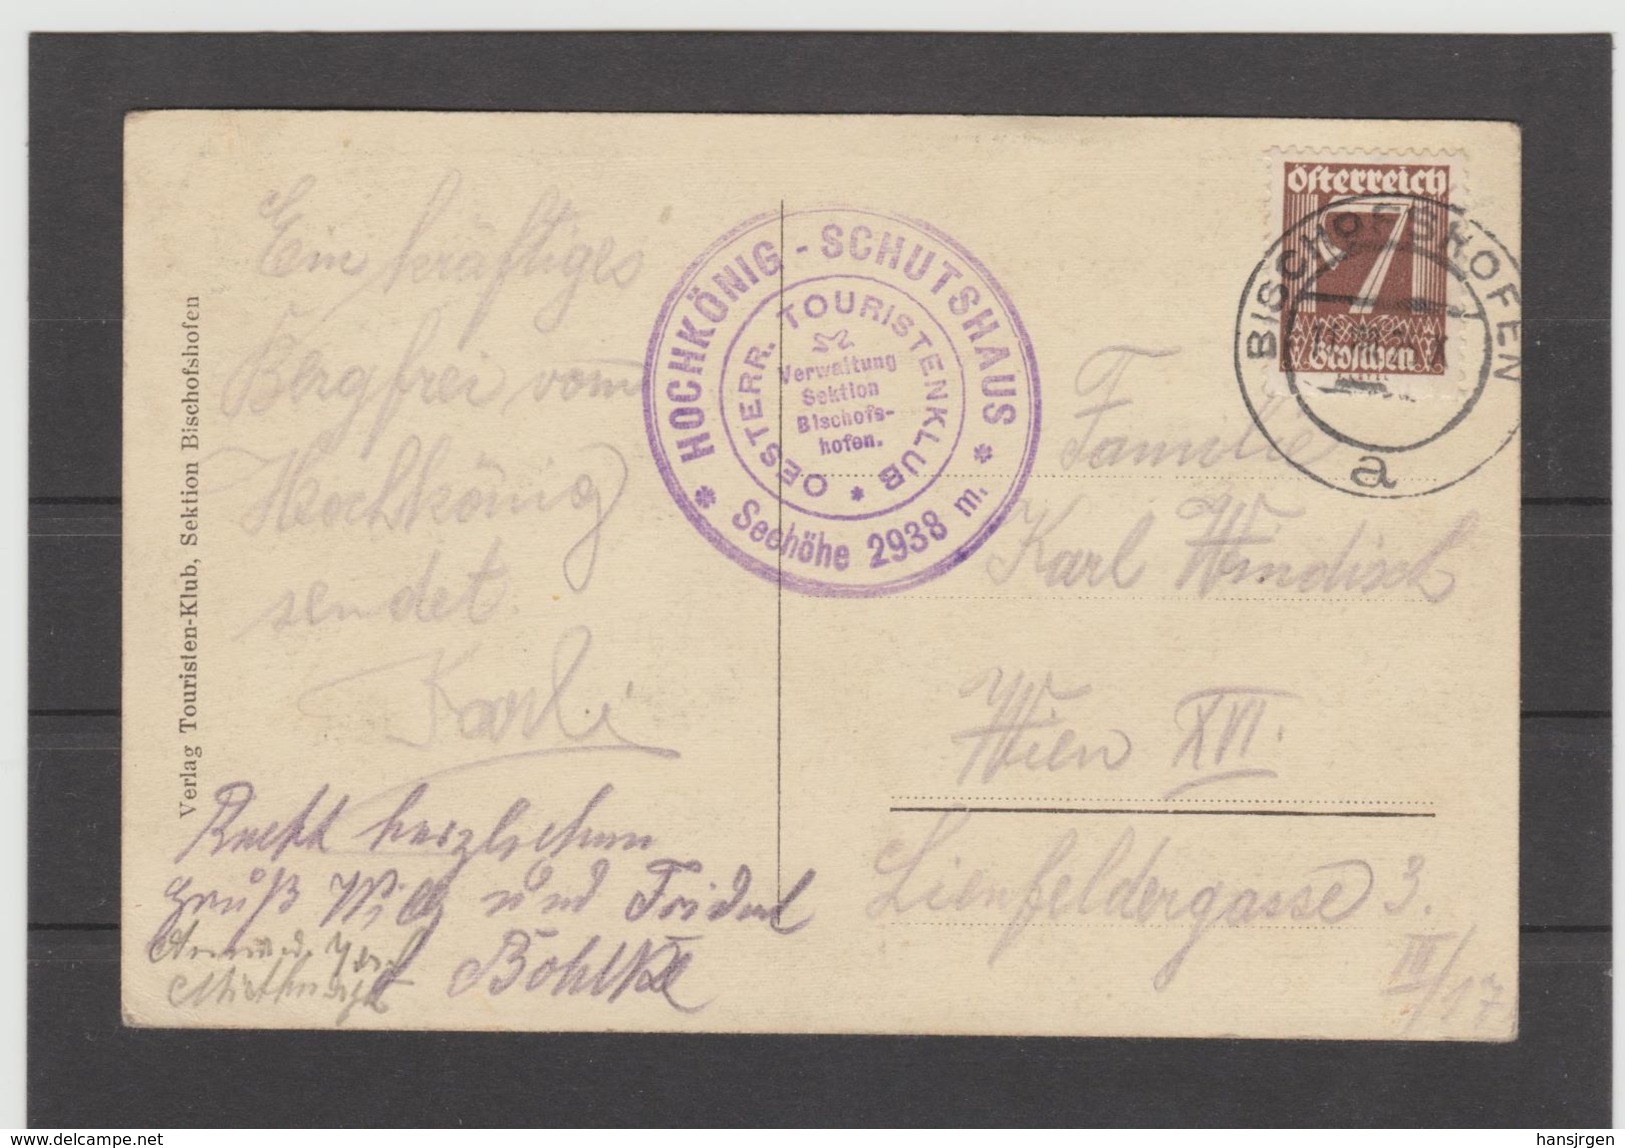 Ein kräftiges
Bergfrei vom
Hochkönig
sendet.
Karli
Recht herzlichen
Gruß Willy und Friedel
Böhlke
Verlag Touristen-Klub, Sektion Bischofshofen
HOCHKÖNIG - SCHUTSHAUS
Seehöhe 2938 m.
OESTERR. TOURISTENKLUB
Verwaltung
Sektion
Bischofs-
hofen.
Österreich
7
Groschen
BISCHOFSHOFEN
a
Familie
Karl Windisch
Wien XVI.
Lienfeldergasse 3.
III/17
www.delcampe.net
hansjrgen